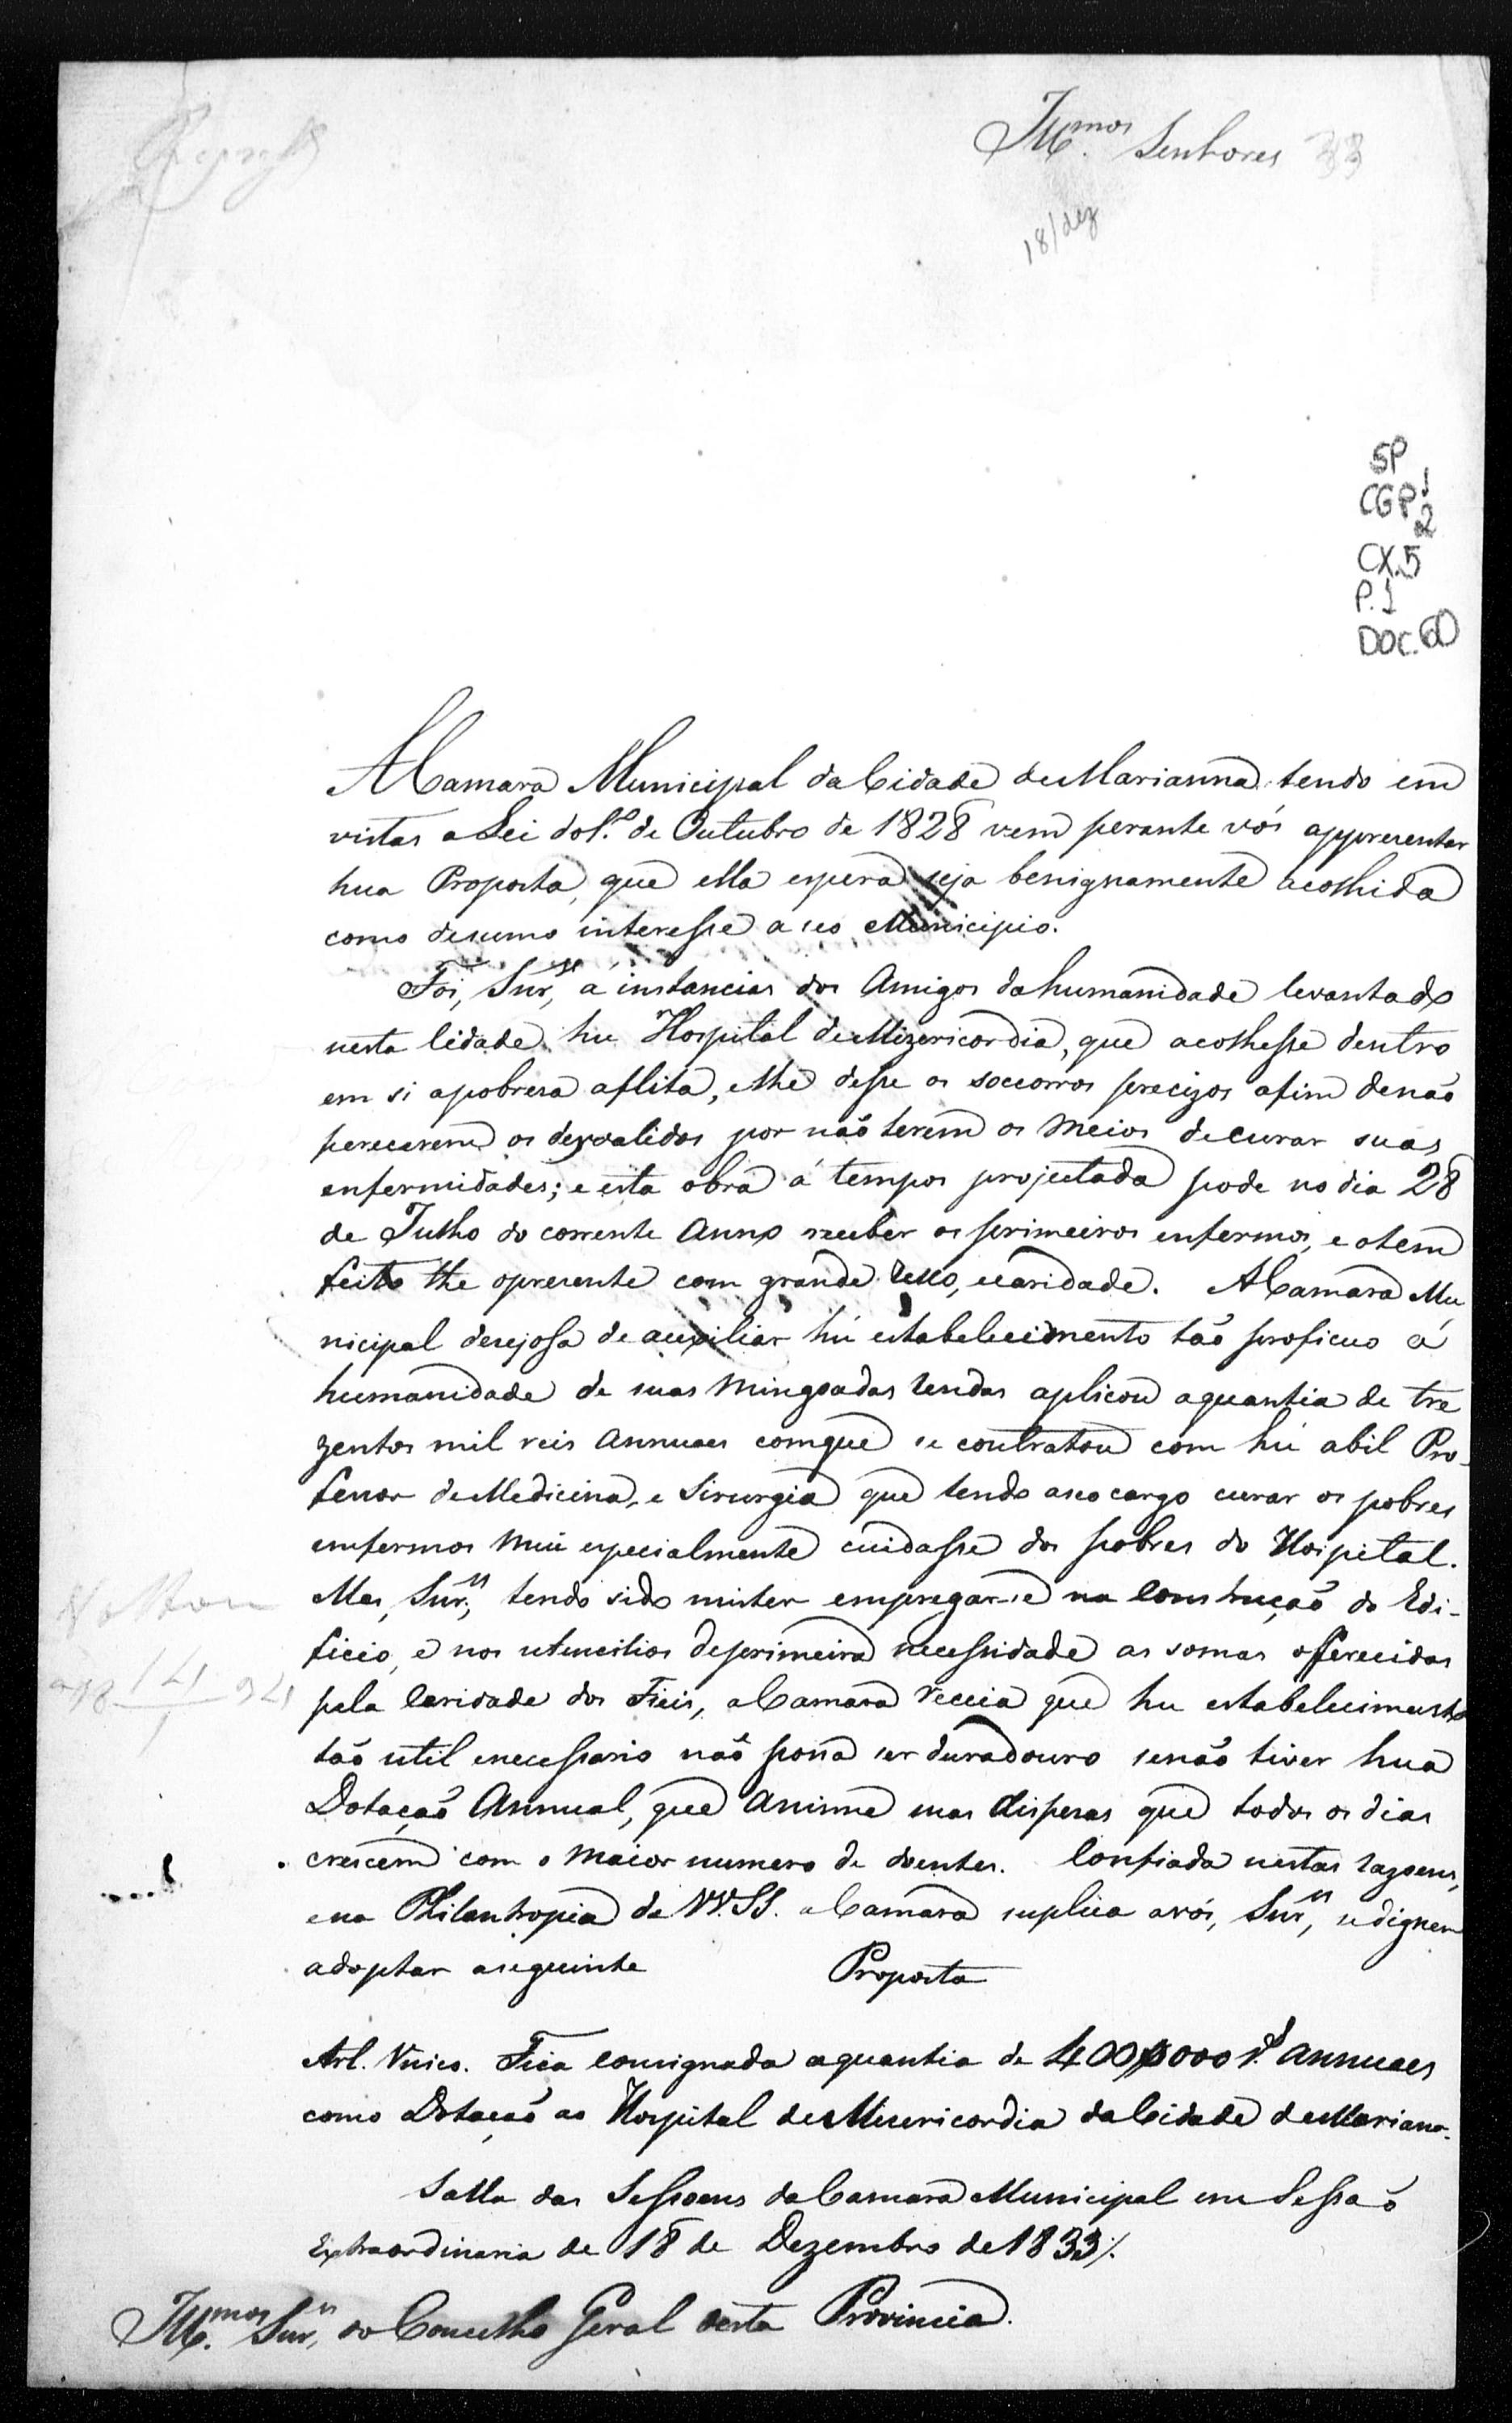 Illmos. Senhores 33
18/dez
SP
CGP 1
2
CX.5
P.1
DOC.60
A Camara Municipal da Cidade de Marianna tendo em
vistas a Lei do 1.º de Outubro de 1828 vem perante vós appresentar
hua Proposta, que ella espera seja benignamente acolhida
como desumo interesse a seo Municipio.
Foi, Snr.es, á instancias dos Amigos da humanidade levantado
nesta Cidade hu Hospital de Mizericordia, que acolhesse dentro
em si a pobresa aflita, e lhe desse os soccorros precizos afim de não
perecerem os desvalidos por não terem os meios de curar suas
enfermidades; e esta obra á tempos projectada pode no dia 28
de Julho do corrente Anno receber os primeiros enfermos, e o tem
feito the o presente com grande zello, e caridade. A Camara Mu
nicipal desejosa de auxiliar hú estabelecimento tão proficuo á
humanidade de suas mingoadas rendas aplicou a quantia de tre
zentos mil reis Annuaes com que se contratou com hú abil Pro-
fessor de Medicina, e Sirurgia que tendo a seo cargo curar os pobres
enfermos mui especialmente cuidasse dos pobres do Hospital.
Mas, Snr.es, tendo sido mister empregar-se na construcção do Edi-
ficio, e nos utencilios de primeira necessidade as somas offerecidas
pela Caridade dos Fieis, a Camara receia que hu estabelecimento
tão util e necessario não possa ser duradouro se não tiver hua
Dotação Annual, que anime suas dispesas que todos os dias
crescem com o maior numero de doentes. Confiada nestas razoens,
e na Philantropia de VV. SS. a Camara suplica a vós, Snr.es, se dignem
adoptar a seguinte Proposta
Art. Unico. Fica consignada a quantia de 400$000 r.s annuaes
como Dotação ao Hospital de Misericordia da Cidade de Mariana.
Salla das Sessoens da Camara Municipal em Sessão
Extraordinaria de 18 de Dezembro de 1833/.
Illmos. Snr.es do Concelho Geral desta Provincia.